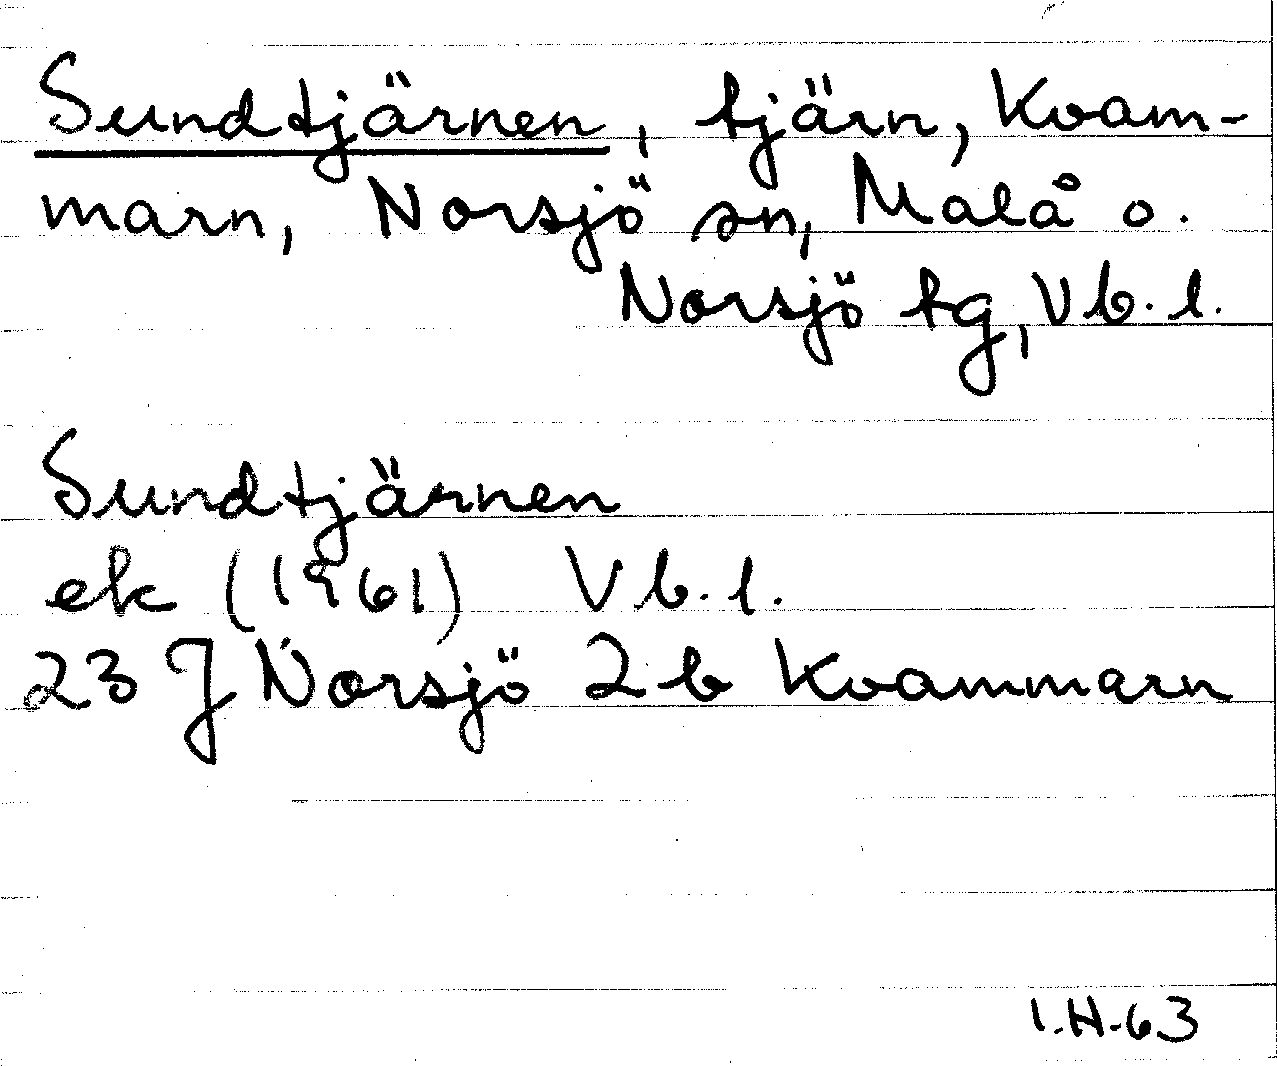 Sundtjärnen, tjärn, Kvam-
marn, Norsjö sn, Malå o.
Norsjö tg, Vb. l.
Sundtjärnen
ek (1961) Vb. l.
23 J Norsjö 2 b Kvammarn
I.H-63